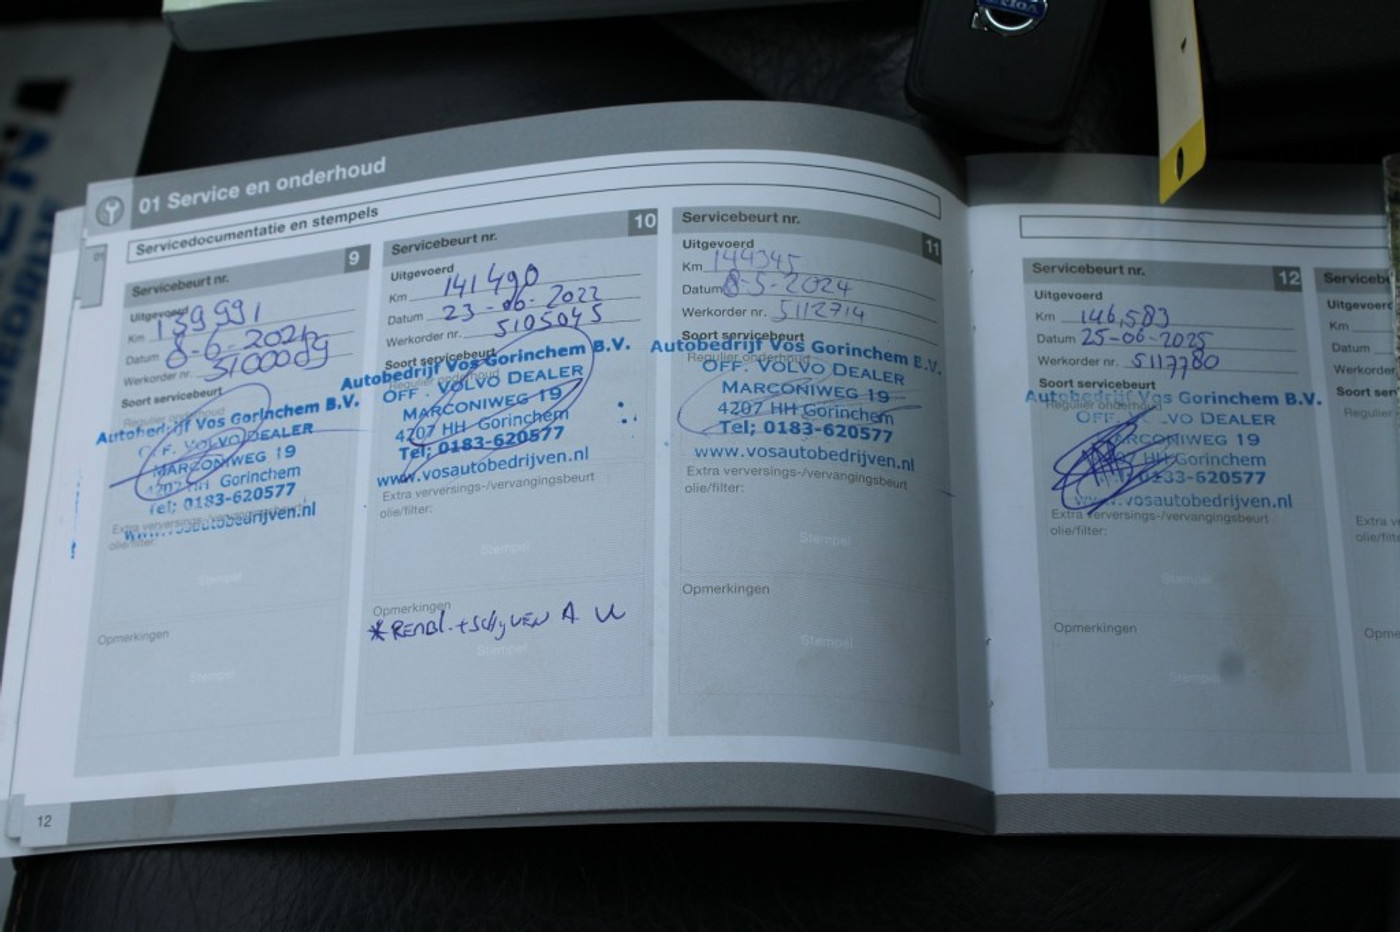 VOLVO
01 Service en onderhoud
Servicedocumentatie en stempels
01
Servicebeurt nr. 9
Uitgevoerd
Km 139991
Datum 8-6-2021
Werkorder nr. 5100089
Soort servicebeurt
Regulier onderhoud
Autobedrijf Vos Gorinchem B.V.
OFF. VOLVO DEALER
MARCONIWEG 19
4207 HH Gorinchem
Tel; 0183-620577
www.vosautobedrijven.nl
Extra verversings-/vervangingsbeurt
olie/filter:
Stempel
Opmerkingen
Stempel
Servicebeurt nr. 10
Uitgevoerd
Km 141490
Datum 23-06-2022
Werkorder nr. 5105045
Soort servicebeurt
Regulier onderhoud
Autobedrijf Vos Gorinchem B.V.
OFF. VOLVO DEALER
MARCONIWEG 19
4207 HH Gorinchem
Tel; 0183-620577
www.vosautobedrijven.nl
Extra verversings-/vervangingsbeurt
olie/filter:
Stempel
Opmerkingen
* REMBL. + SCHIJVEN A
Stempel
Servicebeurt nr. 11
Uitgevoerd
Km 144345
Datum 8-5-2024
Werkorder nr. 5112714
Soort servicebeurt
Regulier onderhoud
Autobedrijf Vos Gorinchem B.V.
OFF. VOLVO DEALER
MARCONIWEG 19
4207 HH Gorinchem
Tel; 0183-620577
www.vosautobedrijven.nl
Extra verversings-/vervangingsbeurt
olie/filter:
Stempel
Opmerkingen
Stempel
12
Servicebeurt nr. 12
Uitgevoerd
Km 146,583
Datum 25-06-2025
Werkorder nr. 5117780
Soort servicebeurt
Regulier onderhoud
Autobedrijf Vos Gorinchem B.V.
OFF. VOLVO DEALER
MARCONIWEG 19
HH Gorinchem
0183-620577
www.vosautobedrijven.nl
Extra verversings-/vervangingsbeurt
olie/filter:
Stempel
Opmerkingen
Stempel
Serviceb
Uitgevoerd
Km
Datum
Werkorder
Soort ser
Regulier
Extra ve
olie/filte
Opme